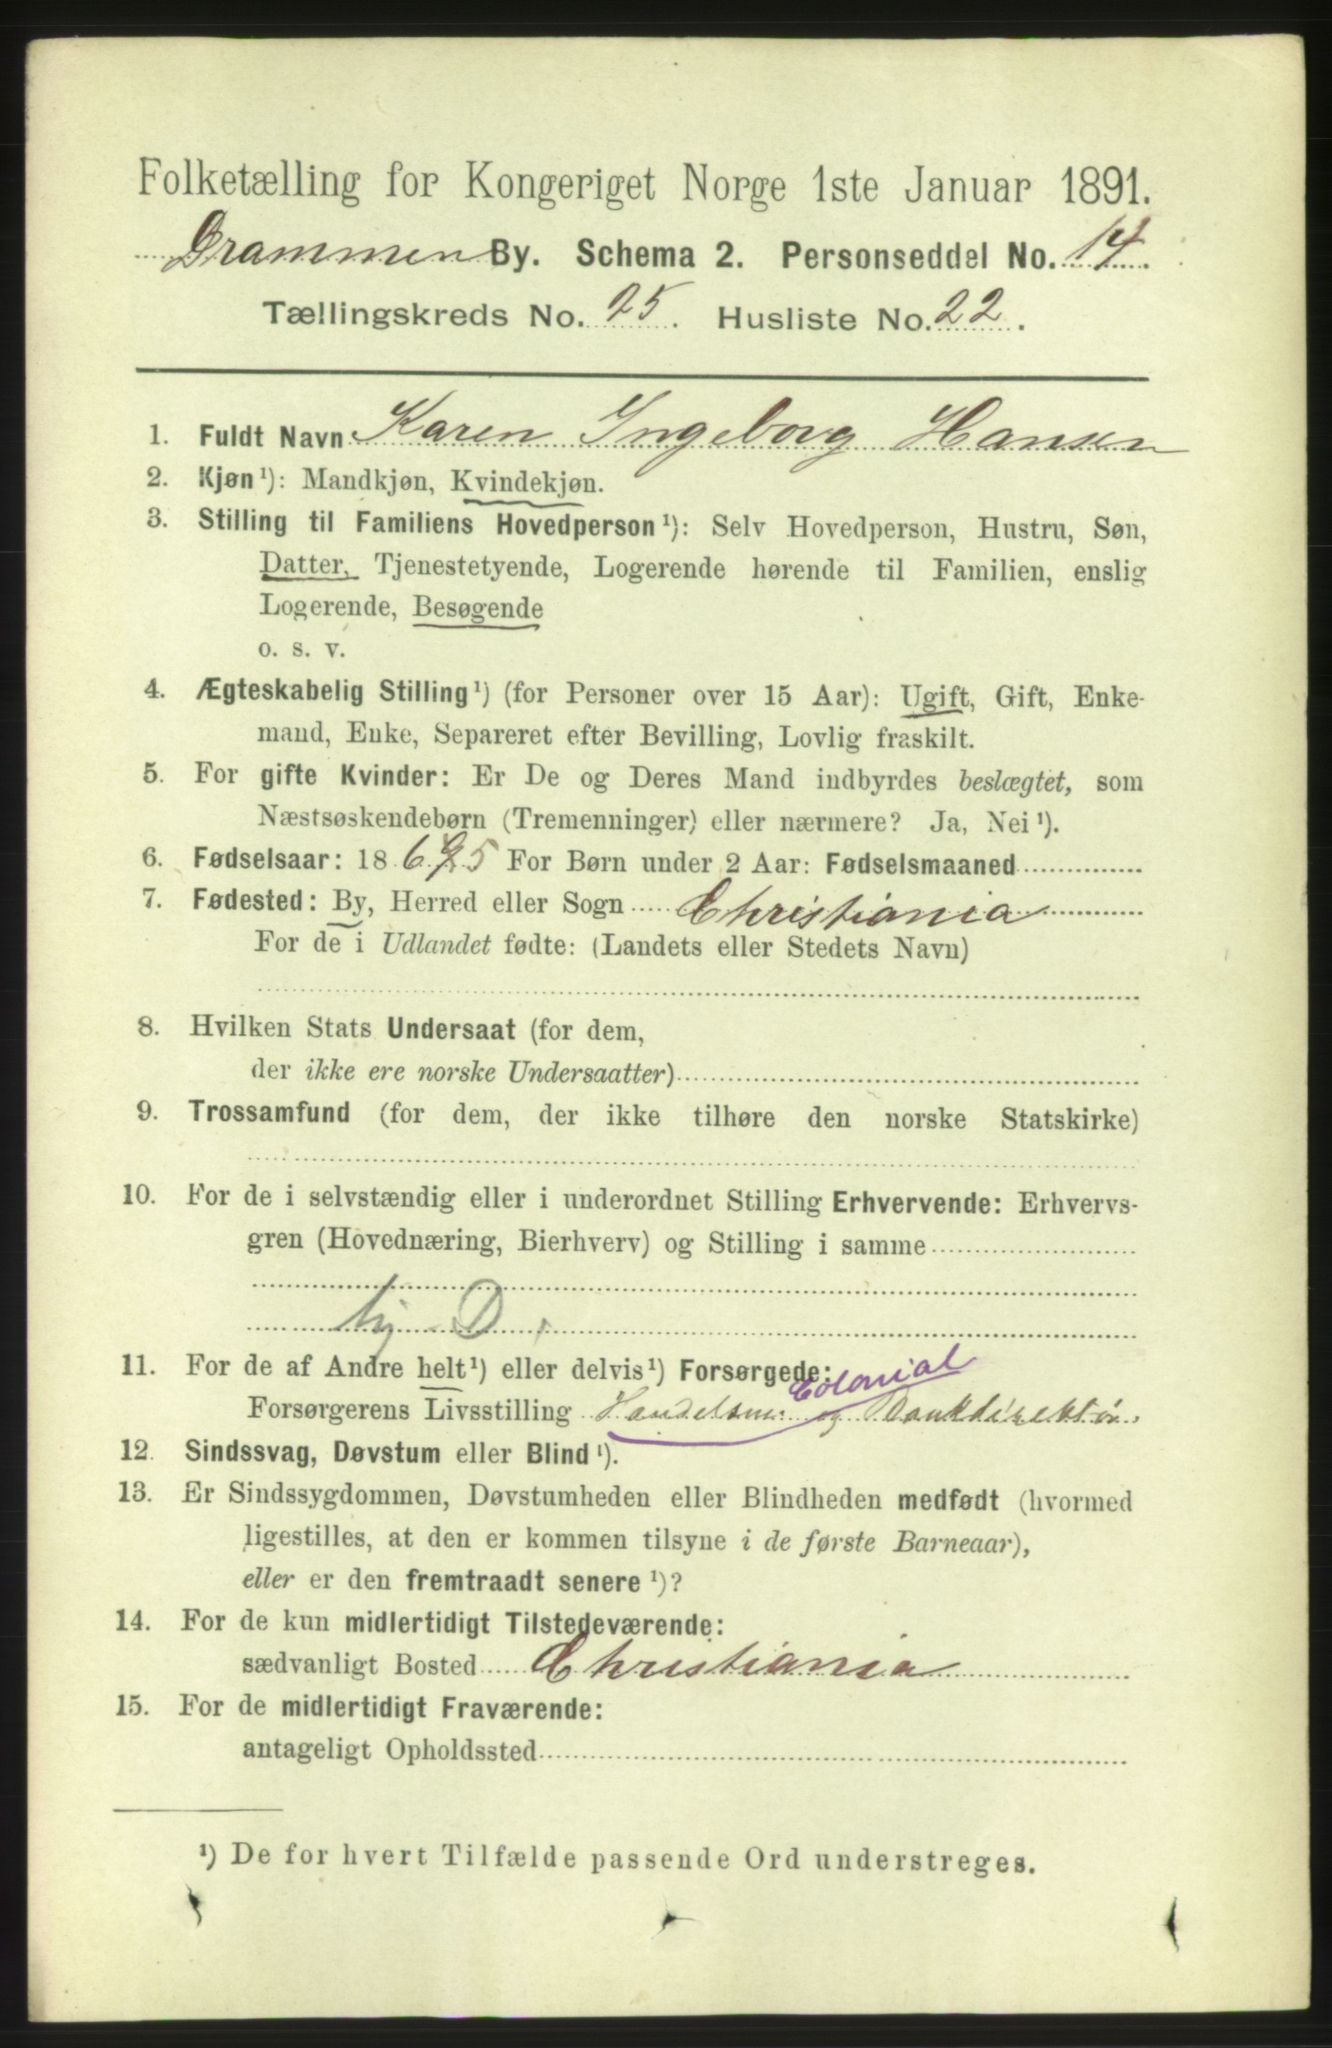 Folketælling for Kongeriget Norge 1ste Januar 1891.
Drammen By. Schema 2. Personseddel No. 14.
Tællingskreds No. 25. Husliste No. 22.
1. Fuldt Navn Karen Ingeborg Hansen
2. Kjøn¹): Mandkjøn, Kvindekjøn.
3. Stilling til Familiens Hovedperson¹): Selv Hovedperson, Hustru, Søn,
Datter, Tjenestetyende, Logerende hørende til Familien, enslig
Logerende, Besøgende
o. s. v.
4. Ægteskabelig Stilling¹) (for Personer over 15 Aar): Ugift, Gift, Enke-
mand, Enke, Separeret efter Bevilling, Lovlig fraskilt.
5. For gifte Kvinder: Er De og Deres Mand indbyrdes beslægtet, som
Næstsøskendebørn (Tremenninger) eller nærmere? Ja, Nei¹).
6. Fødselsaar: 18 For Børn under 2 Aar: Fødselsmaaned
7. Fødested: By, Herred eller Sogn Christiania
For de i Udlandet fødte: (Landets eller Stedets Navn)
8. Hvilken Stats Undersaat (for dem,
der ikke ere norske Undersaatter)
9. Trossamfund (for dem, der ikke tilhøre den norske Statskirke)
10. For de i selvstændig eller i underordnet Stilling Erhvervende: Erhvervs-
gren (Hovednæring, Bierhverv) og Stilling i samme
D.
11. For de af Andre helt¹) eller delvis¹) Forsørgede:
Colonial
Forsørgerens Livsstilling Handelsm. og Bankdirektør.
12. Sindssvag, Døvstum eller Blind¹).
13. Er Sindssygdommen, Døvstumheden eller Blindheden medfødt (hvormed
ligestilles, at den er kommen tilsyne i de første Barneaar),
eller er den fremtraadt senere¹)?
14. For de kun midlertidigt Tilstedeværende:
sædvanligt Bosted Christiania
15. For de midlertidigt Fraværende:
antageligt Opholdssted
¹) De for hvert Tilfælde passende Ord understreges.